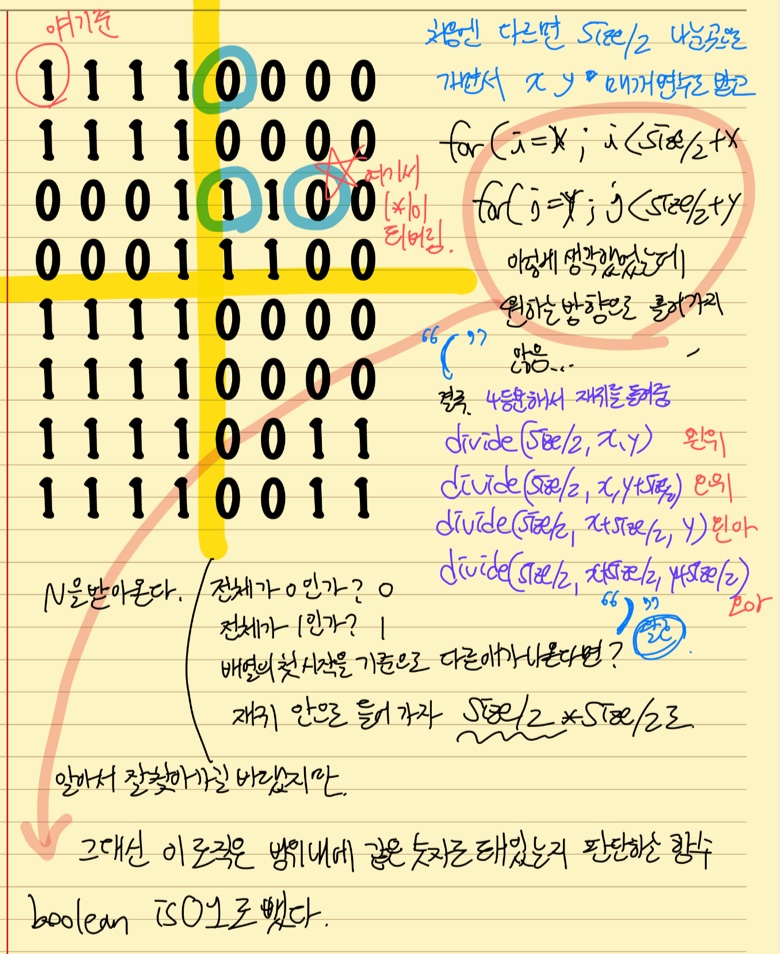 여기준
1 1 1 1 0 0 0 0
1 1 1 1 0 0 0 0
0 0 0 1 1 1 0 0
0 0 0 1 1 1 0 0
1 1 1 1 0 0 0 0
1 1 1 1 0 0 0 0
1 1 1 1 0 0 1 1
1 1 1 1 0 0 1 1
여기서
1*1이
되버림.
처음엔 다르면 size/2 나눈곳으로
가면서 x y 매개변수로 받고
for(i=x; i<size/2+x
for(j=y; j<size/2+y
이렇게 생각했었는데
원하는 방향으로 흘러가지
않음...
“ ( ”
결국, 4등분해서 재귀를 돌려줌
divide(size/2, x,y) 왼위
divide(size/2, x,y+size/2) 오위
divide(size/2, x+size/2, y) 왼아
divide(size/2, x+size/2, y+size/2)
오아
“ ) ”
N을 받아온다.
전체가 0인가? 0
전체가 1인가? 1
배열의 첫 시작을 기준으로 다른애가 나온다면?
재귀 안으로 들어가자 size/2 * size/2로
알아서 잘 찾아가길 바랬지만.
그대신 이 로직은 범위내에 같은 숫자로 돼있는지 판단하는 함수
boolean is01로 뺐다.